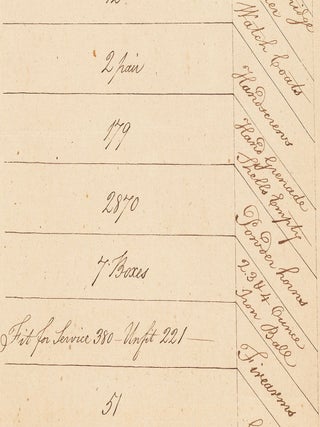 ridge
Watch Coats
2 pair
Handscrews
179
Hand Grenade
Shells Empty
2870
Powder horns
7 Boxes
2 3 & 4 Ounce
Iron Ball
Fit for Service 380 - Unfit 221 -
Firearms
51